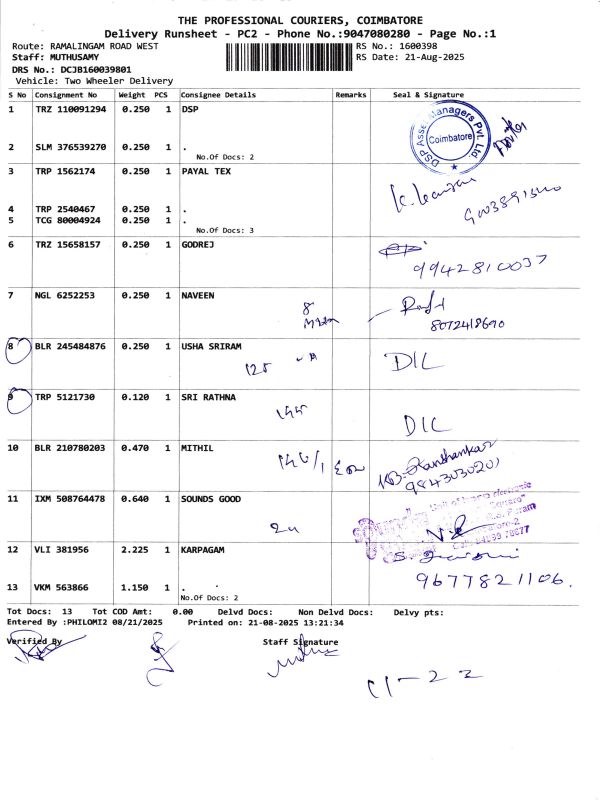 THE PROFESSIONAL COURIERS, COIMBATORE
Delivery Runsheet - PC2 - Phone No.:9047080280 - Page No.:1
Route: RAMALINGAM ROAD WEST
RS No.: 1600398
Staff: MUTHUSAMY
RS Date: 21-Aug-2025
DRS No.: DCJB160039801
Vehicle: Two Wheeler Delivery
S No Consignment No Weight PCS Consignee Details Remarks Seal & Signature
1 TRZ 110091294 0.250 1 DSP
DSP Asset Managers Pvt. Ltd. Coimbatore
2 SLM 376539270 0.250 1 .
No.Of Docs: 2
3 TRP 1562174 0.250 1 PAYAL TEX
4 TRP 2540467 0.250 1 .
5 TCG 80004924 0.250 1 .
No.Of Docs: 3
6 TRZ 15658157 0.250 1 GODREJ
9942810037
7 NGL 6252253 0.250 1 NAVEEN
8
8072418690
8 BLR 245484876 0.250 1 USHA SRIRAM
125
D/L
9 TRP 5121730 0.120 1 SRI RATHNA
D/L
10 BLR 210780203 0.470 1 MITHIL
9843030201
11 IXM 508764478 0.640 1 SOUNDS GOOD
12 VLI 381956 2.225 1 KARPAGAM
9677821106.
13 VKM 563866 1.150 1 .
No.Of Docs: 2
Tot Docs: 13 Tot COD Amt: 0.00 Delvd Docs: Non Delvd Docs: Delvy pts:
Entered By :PHILOMI2 08/21/2025 Printed on: 21-08-2025 13:21:34
Verified By Staff Signature
11-22